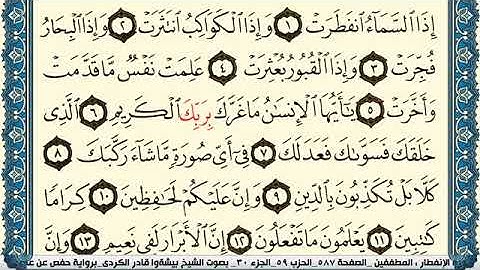 إِذَا السَّمَاءُ انفَطَرَتْ ١ وَإِذَا الْكَوَاكِبُ انتَثَرَتْ ٢ وَإِذَا الْبِحَارُ
فُجِّرَتْ ٣ وَإِذَا الْقُبُورُ بُعْثِرَتْ ٤ عَلِمَتْ نَفْسٌ مَّا قَدَّمَتْ
وَأَخَّرَتْ ٥ يَٰأَيُّهَا الْإِنسَٰنُ مَا غَرَّكَ بِرَبِّكَ الْكَرِيمِ ٦ الَّذِى
خَلَقَكَ فَسَوَّىٰكَ فَعَدَلَكَ ٧ فِىٓ أَىِّ صُورَةٍ مَّا شَآءَ رَكَّبَكَ ٨
كَلَّا بَلْ تُكَذِّبُونَ بِالدِّينِ ٩ وَإِنَّ عَلَيْكُمْ لَحَٰفِظِينَ ١٠ كِرَامًا
كَٰتِبِينَ ١١ يَعْلَمُونَ مَا تَفْعَلُونَ ١٢ إِنَّ الْأَبْرَارَ لَفِى نَعِيمٍ ١٣ وَإِنَّ
الانفطار ، المطففين _ الصفحة ٥٨٧_ الحزب ٥٩_ الجزء ٣٠_ بصوت الشيخ بيشةوا قادر الكردى_ برواية حفص عن